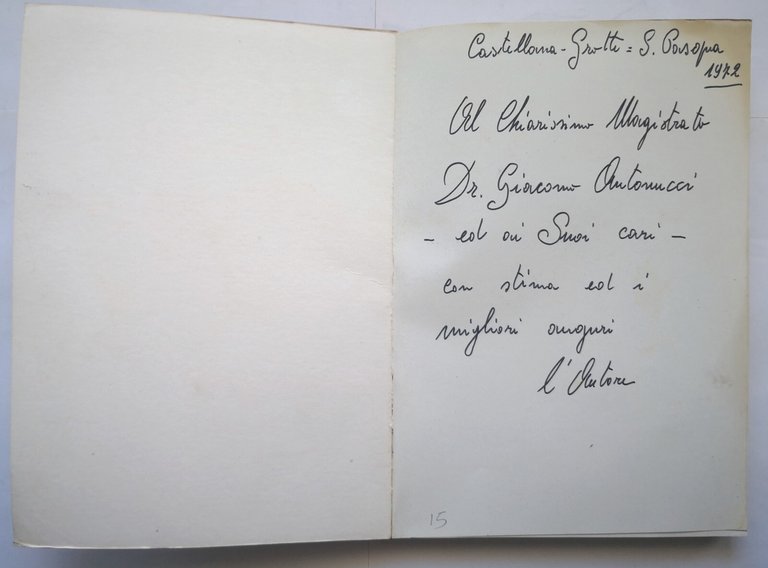 Castellana-Grotte = S. Pasqua
1972
Al Chiarissimo Magistrato
Dr. Giacomo Antonucci
- ed ai Suoi cari -
con stima ed i
migliori auguri
l'Autore
15